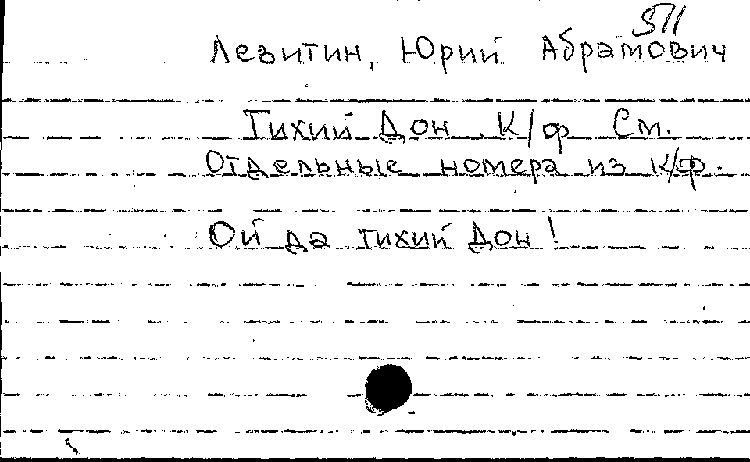 511
Левитин, Юрий Абрамович
Тихий Дон. К/ф См.
Отдельные номера из к/ф.
Ой да тихий Дон!